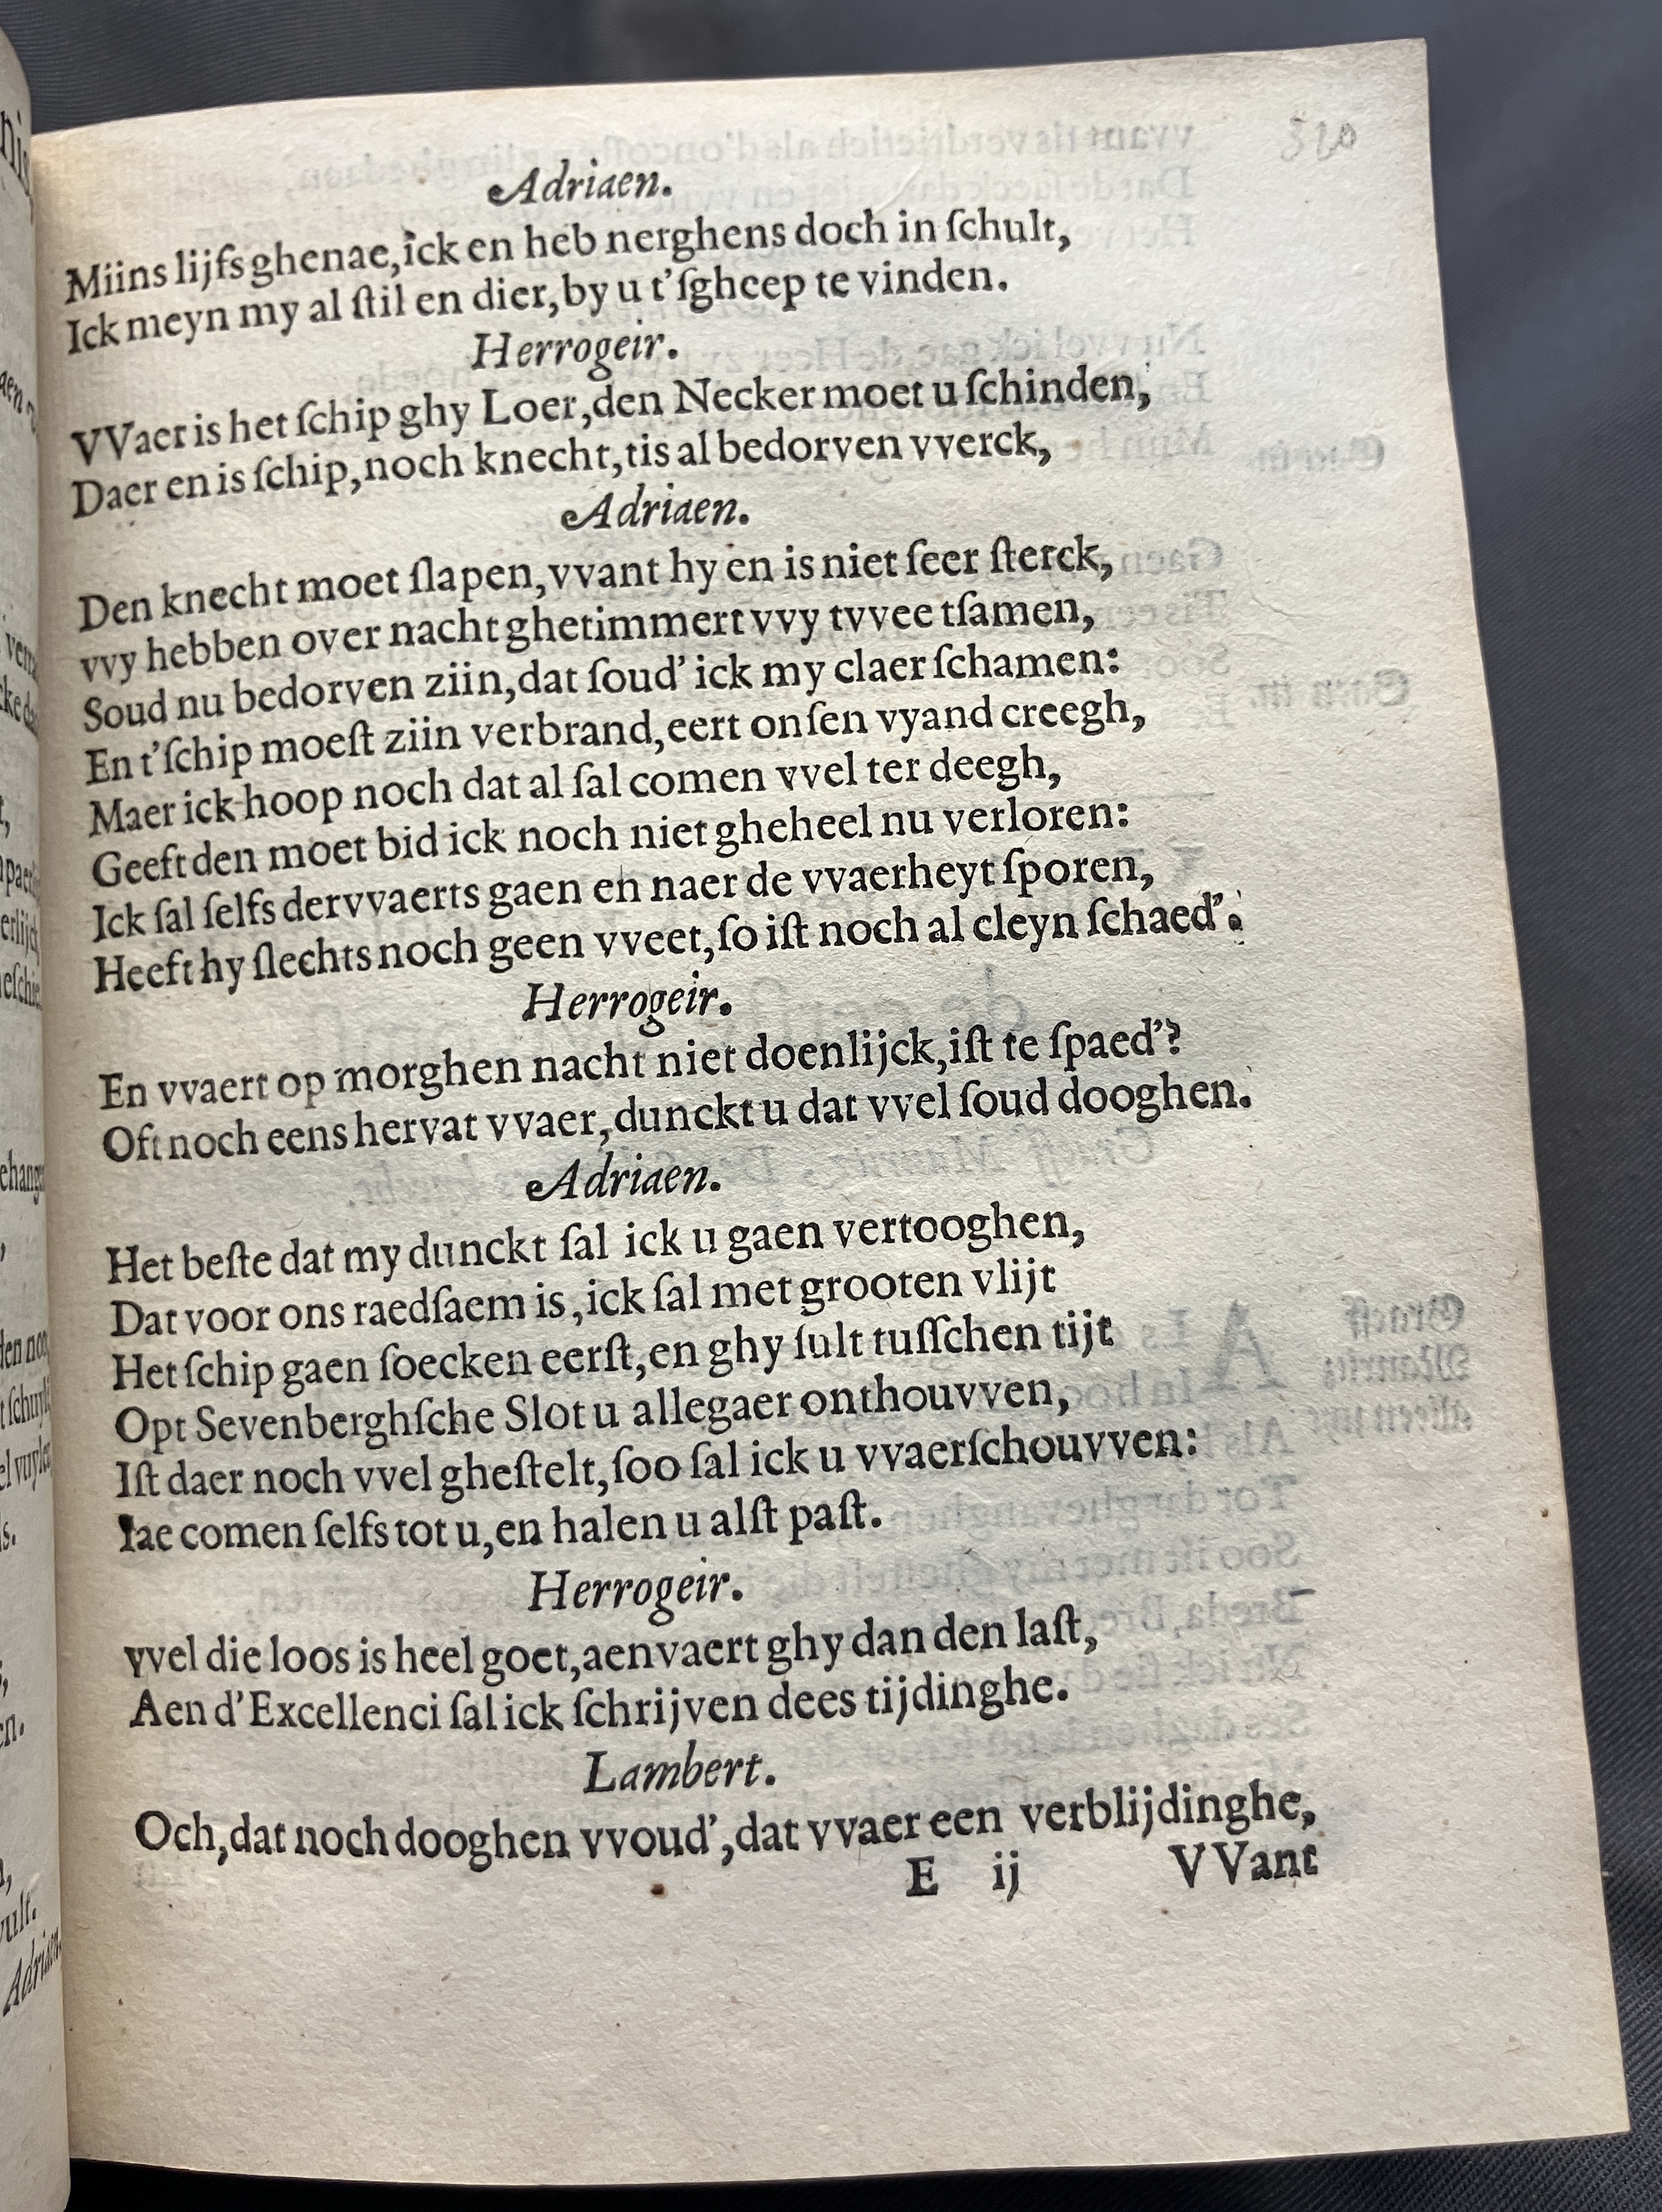 320
Adriaen.
Miins lijfs ghenae, ick en heb nerghens doch in ſchult,
Ick meyn my al ſtil en dier, by u t'ſgheep te vinden.
Herrogeir.
VVaer is het ſchip ghy Loer, den Necker moet u ſchinden,
Daer en is ſchip, noch knecht, tis al bedorven vverck,
Adriaen.
Den knecht moet ſlapen, vvant hy en is niet ſeer ſterck,
vvy hebben over nacht ghetimmert vvy tvvee tſamen,
Soud nu bedorven ziin, dat ſoud' ick my claer ſchamen:
En t'ſchip moeſt ziin verbrand, eert onſen vyand creegh,
Maer ick hoop noch dat al ſal comen vvel ter deegh,
Geeft den moet bid ick noch niet gheheel nu verloren:
Ick ſal ſelfs dervvaerts gaen en naer de vvaerheyt ſporen,
Heeft hy ſlechts noch geen vveet, ſo iſt noch al cleyn ſchaed'.
Herrogeir.
En vvaert op morghen nacht niet doenlijck, iſt te ſpaed'?
Oft noch eens hervat vvaer, dunckt u dat vvel ſoud dooghen.
Adriaen.
Het beſte dat my dunckt ſal ick u gaen vertooghen,
Dat voor ons raedſaem is, ick ſal met grooten vlijt
Het ſchip gaen ſoecken eerſt, en ghy ſult tuſſchen tijt
Opt Sevenberghſche Slot u allegaer onthouvven,
Iſt daer noch vvel gheſtelt, ſoo ſal ick u vvaerſchouvven:
Iae comen ſelfs tot u, en halen u alſt paſt.
Herrogeir.
vvel die loos is heel goet, aenvaert ghy dan den laſt,
Aen d'Excellenci ſal ick ſchrijven dees tijdinghe.
Lambert.
Och, dat noch dooghen vvoud', dat vvaer een verblijdinghe,
E ij VVant